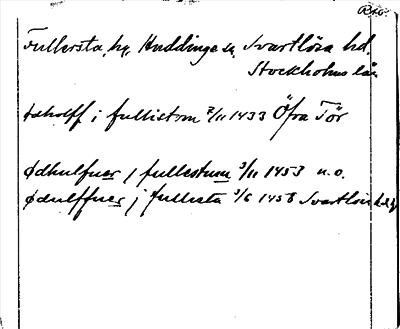 Fullersta, hg, Huddinge sn, Svartlösa hd.
Stockholms län
i fullistom 2/11 1433 Öfra Tör
ødhulfuer j fullestum 3/11 1453 n.o.
ødulffuer j fullesta 3/6 1458 Svartlösa